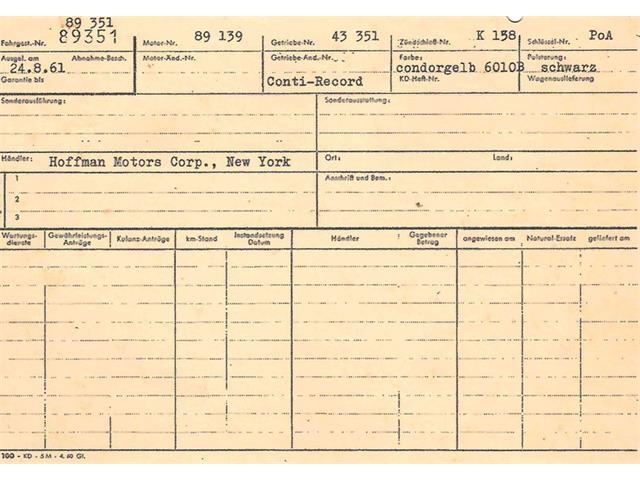 89 351
Fahrgest.-Nr. 89351 Motor-Nr. 89 139 Getriebe-Nr. 43 351 Zündschloß-Nr. K 158 Schlüssel-Nr. PoA
Ausgel. am Abnahme-Besch. Motor-Änd.-Nr. Getriebe-Änd.-Nr. Farbe: Polsterung:
24.8.61 condorgelb 6010B schwarz
Garantie bis Conti-Record KD-Heft-Nr. Wagenauslieferung
Sonderausführung: Sonderausstattung:
Händler: Hoffman Motors Corp., New York Ort: Land:
1 Anschrift und Bem.:
2
3
Wartungs- Gewährleistungs- Kulanz-Anträge km-Stand Instandsetzung Händler Gegebener angewiesen am Natural-Ersatz geliefert am
dienste Anträge Datum Betrag
100 - KD - 5M - 4. 60 Gl.